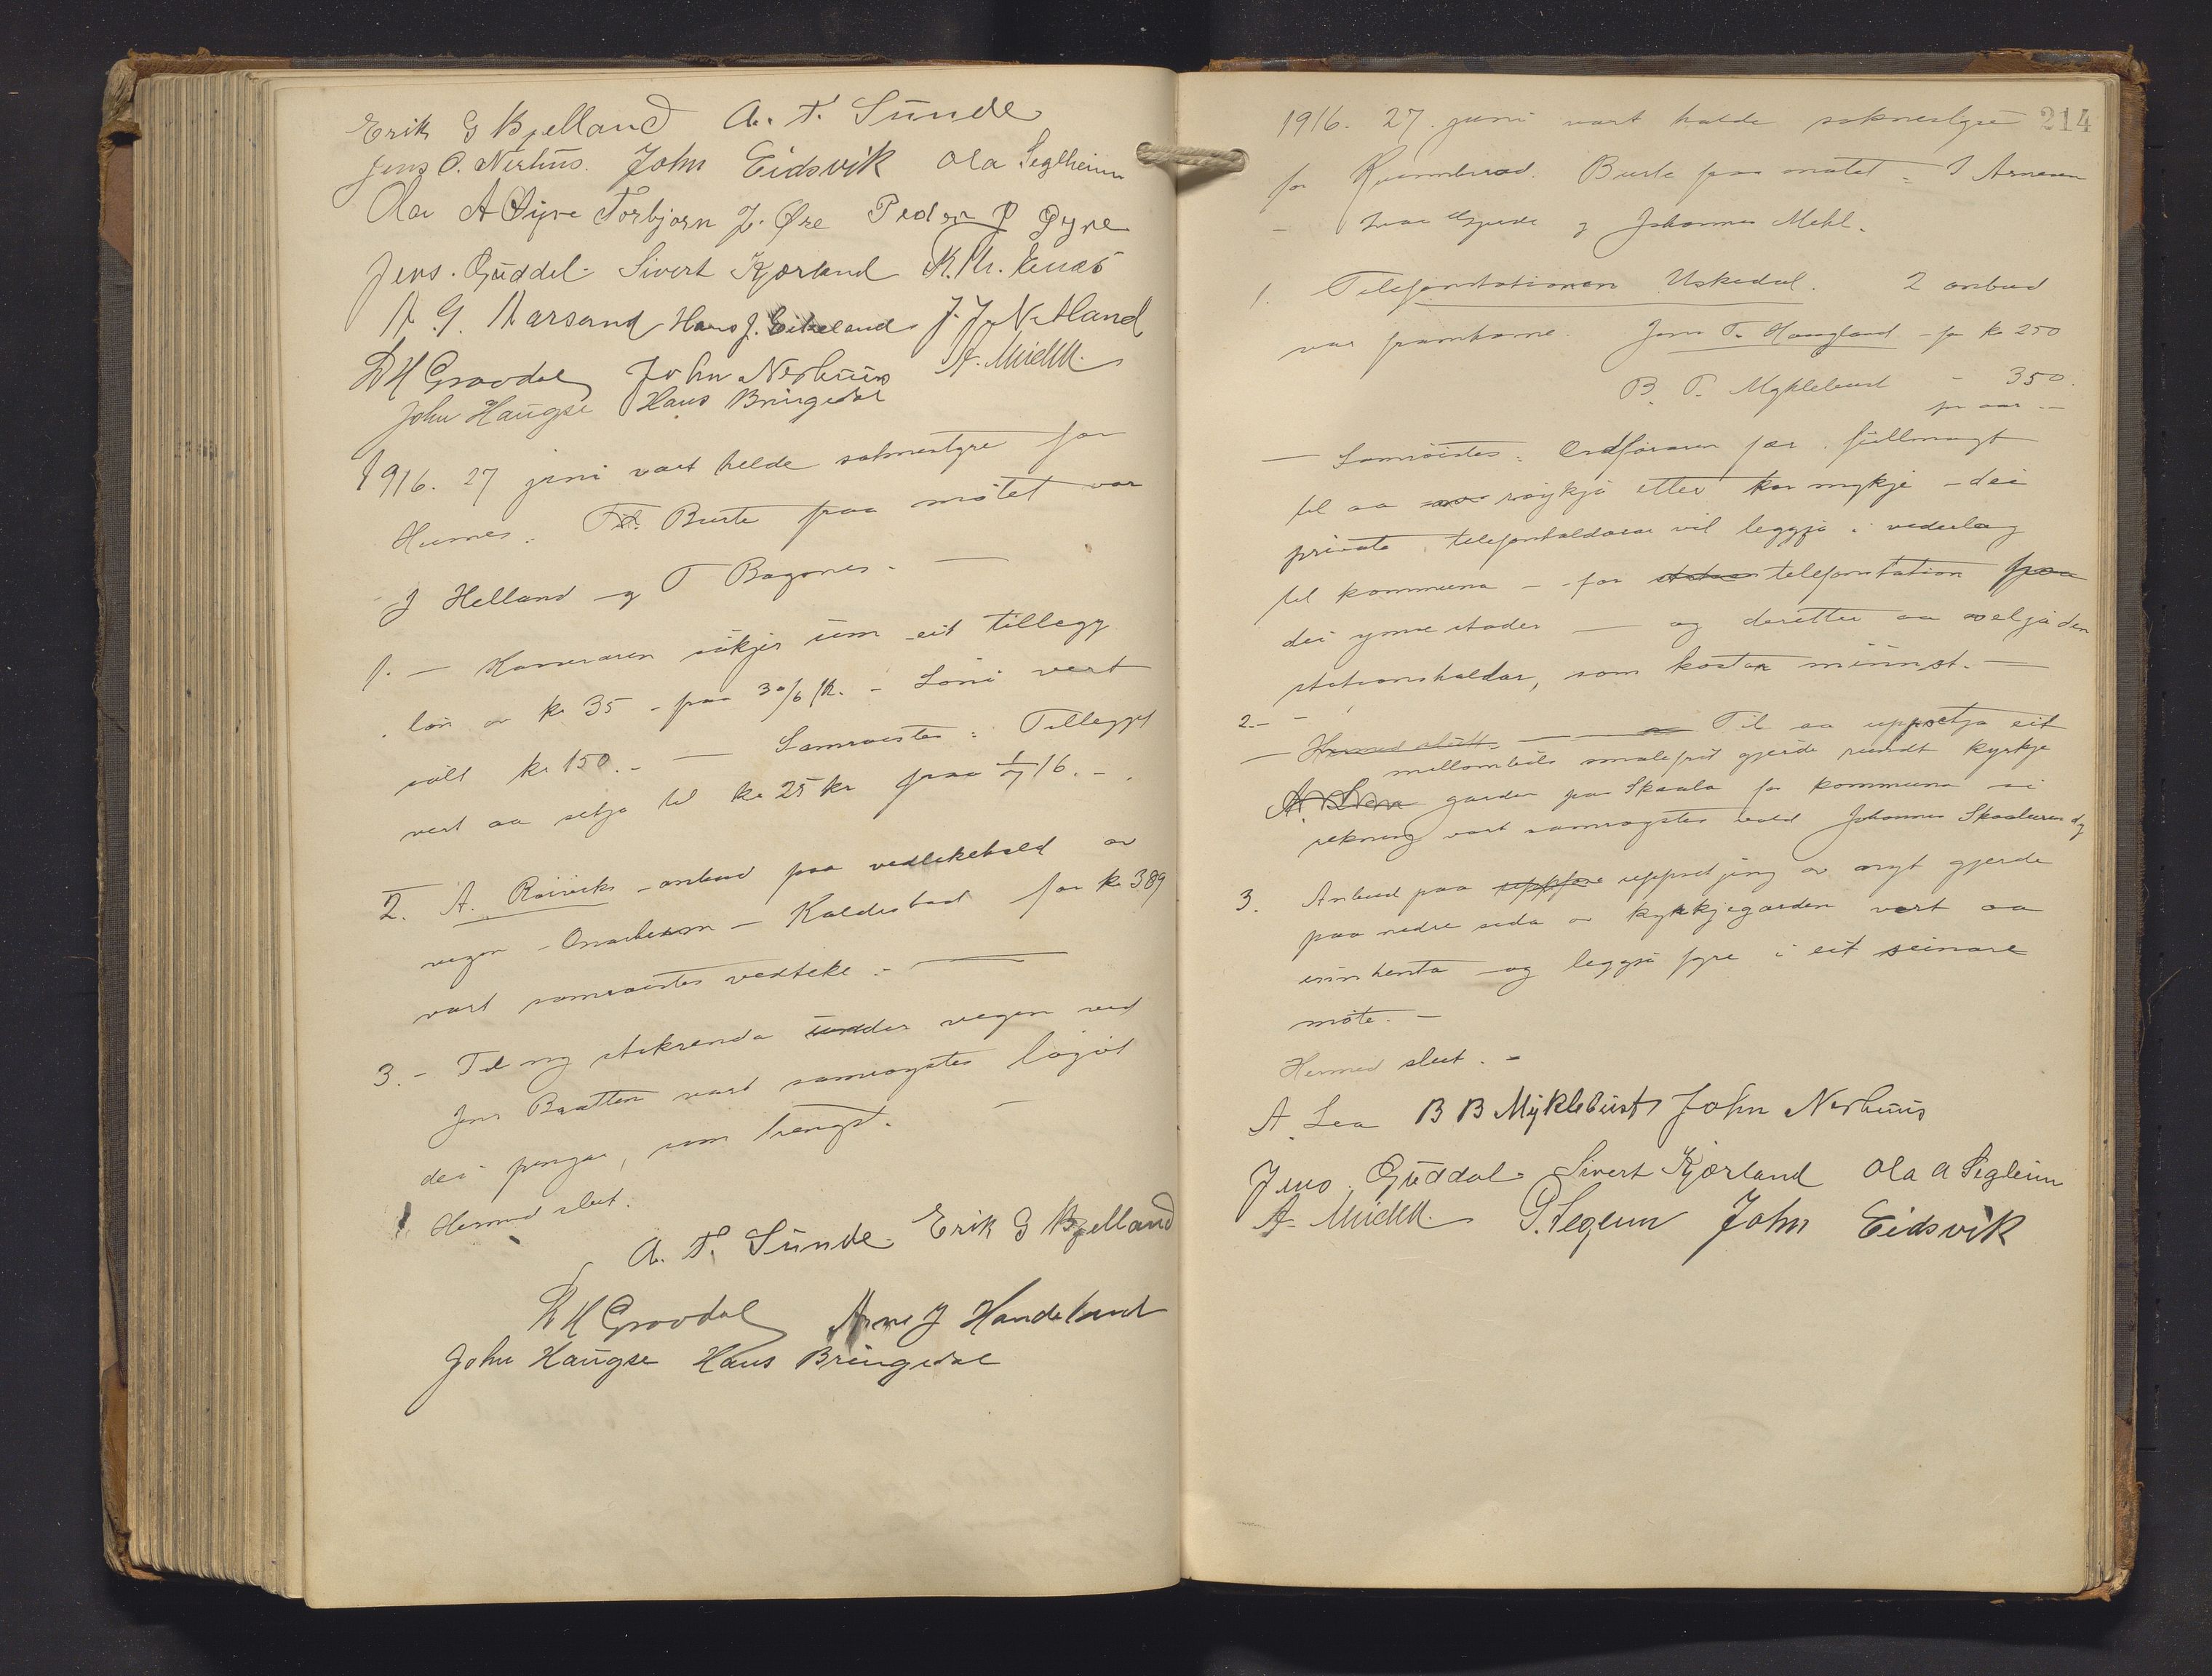 Erik G Bjelland A. T. Sunde
Jens O. Nerhus. John Eidsvik Ola Seglheim
Ola A Øyre Torbjørn J. Øre Peder P Øyre
Jens. Guddal. Sivert Kjærland K. Kr. Enæs
A. G. Aarsand Hans J. Eikeland J. J. Netland
D H Gravdal John Nerhus A. Midttt.
John Haugse Hans Bringedal
1916. 27 juni vart helde soknestyre for
Husnes. Burte fraa møtet var
J Helland og T Bagones. —
1. — Kæmnaren søkjer um eit tillegg
løn av kr 35 - fraa 30/6 - Løni vert
sålt kr 150. — Samrøistes: Tillegget
vert aa setja til kr 25 kr fraa 1/7 16. -
2. A. Røiviks - anbud paa vedlikehald av
vegen - Onarheim - Kaldestad for kr 389
vart samrøistes vedteke. —
3. - Til ny stikrenda under vegen ved
Jens Bratten vart samrøystes løyvt
dei pengar, som trengst. —
Hermed slut.
A. T. Sunde. Erik G Bjelland
D H Gravdal Arne J Handeland
John Haugse Hans Bringedal
214
1916. 27. juni vart halde soknestyre
for Kvinnherad. Burte fraa møtet: I Arnesen
- Ivar Gjerde og Johannes Mehl.
1. Telefonstationen Uskedal. 2 anbud
var framkomne. Jens T. Haugland - for kr 250
B. T. Myklebust - 350.
pr aar. —
— Samrøistes: Ordføraren fær fullmagt
til aa røykja etter kor mykje - dei
private telefonhaldarar vil leggja i vederlag
til kommuna - for telefonstation fraa
dei ymse stader — og deretter aa velja den
stationshaldar, som kostar minnst. —
2. - Hermed slutt. — Til aa uppsetja eit
mellombils smalefrit gjerde rundt kyrkje
A. Lea garden paa Skaala for kommuna si
rekning vart samrøystes vald Johannes Skaaluren og
3. Anbud paa uppsetjing av nytt gjerde
paa nedre sida av kyrkjegarden vert aa
innhenta og leggja fyre i eit seinare
møte. —
Hermed slut. -
A. Lea B B Myklebust John Nerhus
Jens. Guddal. Sivert Kjærland Ola A Segleim
A. Midttt. G. Segleim John Eidsvik